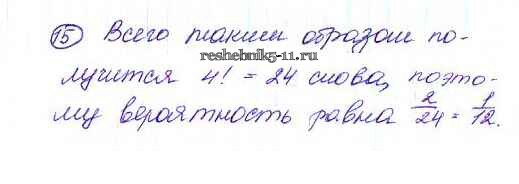 15 Всего таким образом по-
reshebnik5-11.ru
лучится 4! = 24 слова, поэто-
му вероятность равна 2/24 = 1/12.